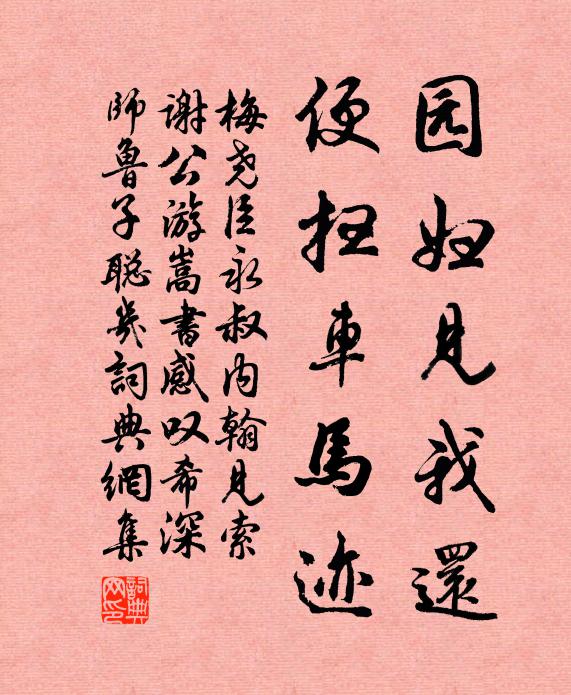 园妇見我還
便扫車馬迹
梅尧臣永叔内翰見索
谢公游嵩書感叹希深
師魯子聪幾詞典網集
詞典网印